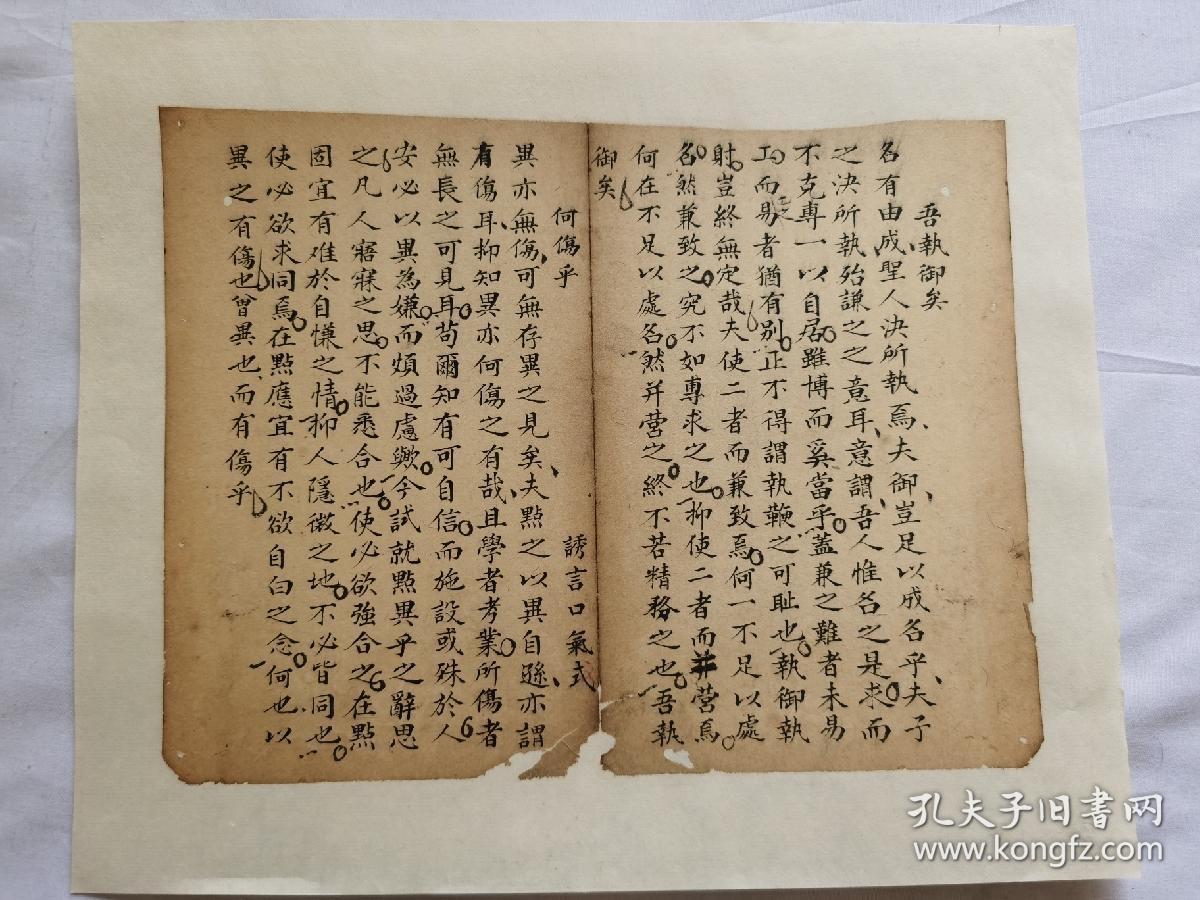 吾執御矣
名有由成聖人決所執焉夫御豈足以成名乎夫子
之決所執殆謙之之意耳意謂吾人惟名之是求而
不克專一以自居雖博而奚當乎蓋兼之難者未易
工而易者猶有別正不得謂執鞭之可耻也執御執
射豈終無定哉夫使二者而兼致焉何一不足以處
名然兼致之究不如專求之也抑使二者而并營焉
何在不足以處名然并營之終不若精務之也吾執
御矣
何傷乎 誘言口氣式
異亦無傷可無存異之見矣夫點之以異自遜亦謂
有傷耳抑知異亦何傷之有哉且學者考業所傷者
無長之可見耳苟爾知有可自信而施設或殊於人
安必以異為嫌而煩過慮歟今試就點異乎之辭思
之凡人寤寐之思不能悉合也使必欲強合之在點
固宜有难於自慊之情抑人隱微之地不必皆同也
使必欲求同焉在點應宜有不欲自白之念何也以
異之有傷也曾異也而有傷乎
孔夫子旧书网
www.kongfz.com